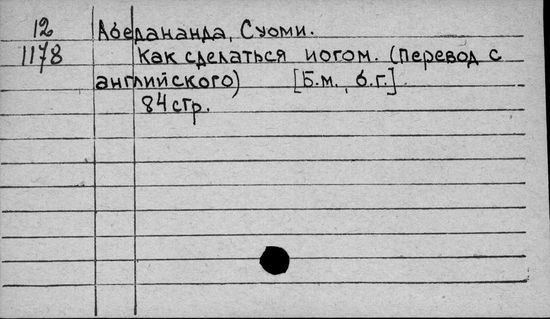 12 Абедананда, Суоми.
1178 Как сделаться иогом. (Перевод с
английского) [Б.м., б.г.]
84 стр.